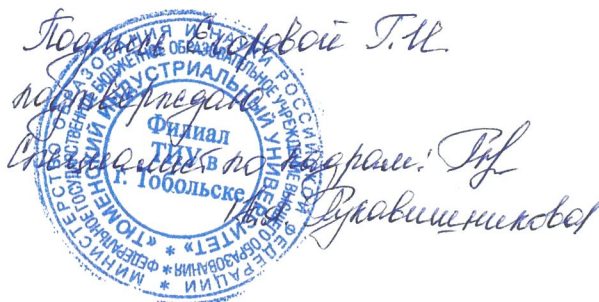 Подпись Егоровой Г.И.
подтверждаю
Специалист по кадрам:
Рукавишникова
МИНИСТЕРСТВО ОБРАЗОВАНИЯ И НАУКИ РОССИЙСКОЙ ФЕДЕРАЦИИ
ФЕДЕРАЛЬНОЕ ГОСУДАРСТВЕННОЕ БЮДЖЕТНОЕ ОБРАЗОВАТЕЛЬНОЕ УЧРЕЖДЕНИЕ ВЫСШЕГО ОБРАЗОВАНИЯ
«ТЮМЕНСКИЙ ИНДУСТРИАЛЬНЫЙ УНИВЕРСИТЕТ»
Филиал
ТИУ в
г. Тобольске